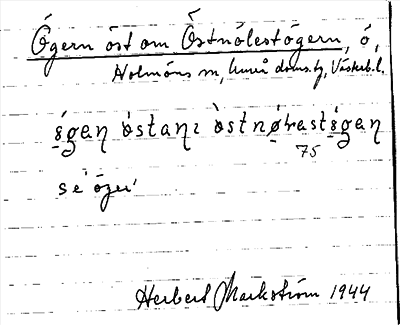 Ögern öst om Östnölestögern, ö,
Holmöns sn, Umeå doms.h., Västerb.l.
ö́gen östanı östnørastö́gen
75
se özer
Herbert Markström 1944